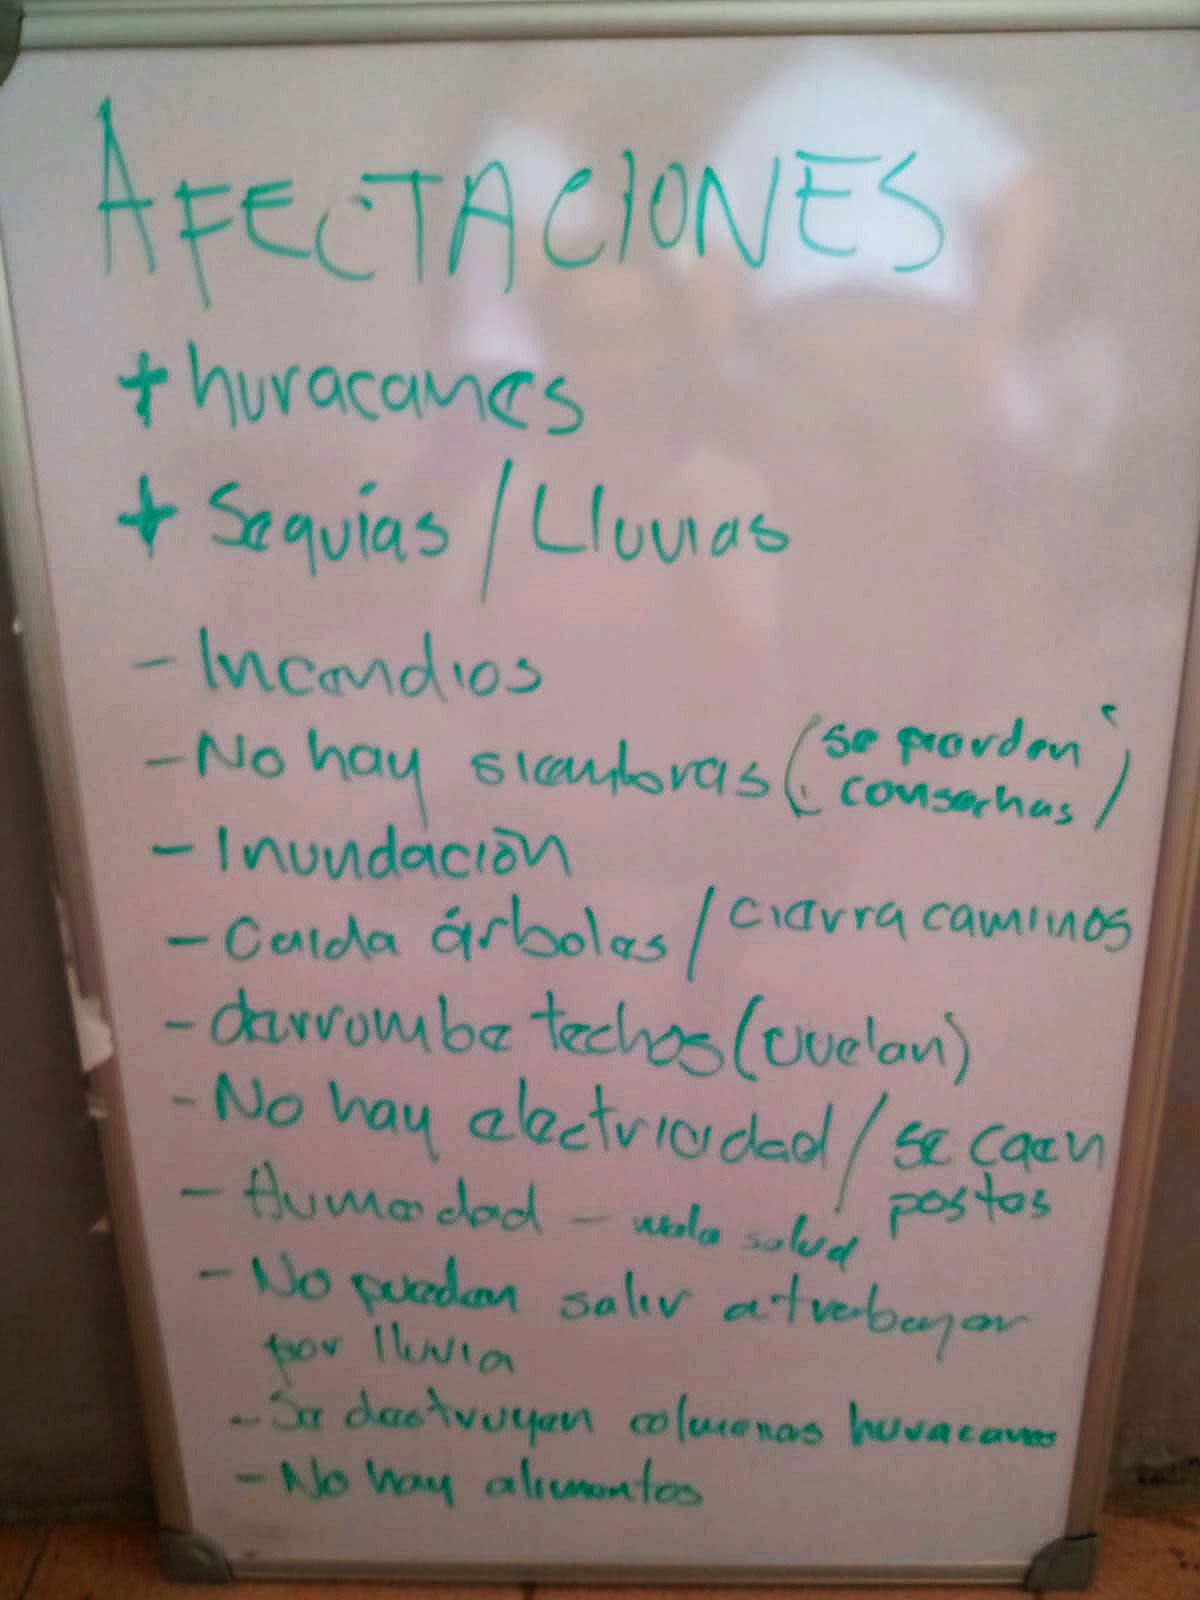 AFECTACIONES
+ huracanes
+ Sequías / Lluvias
- Incendios
- No hay siembras (se pierden cosechas)
- Inundación
- Caida árboles / cierra caminos
- derrumbe techos (vuelan)
- No hay electricidad / se caen postes
- Humedad - mala salud
- No pueden salir a trabajar
por lluvia
- Se destruyen colmenas huracanes
- No hay alimentos